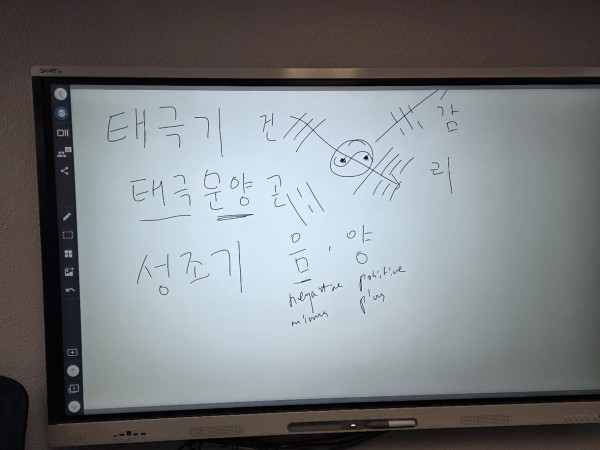 SMART
태극기 건 감
태극문양 곤 리
성조기 음, 양
negative positive
minus plus